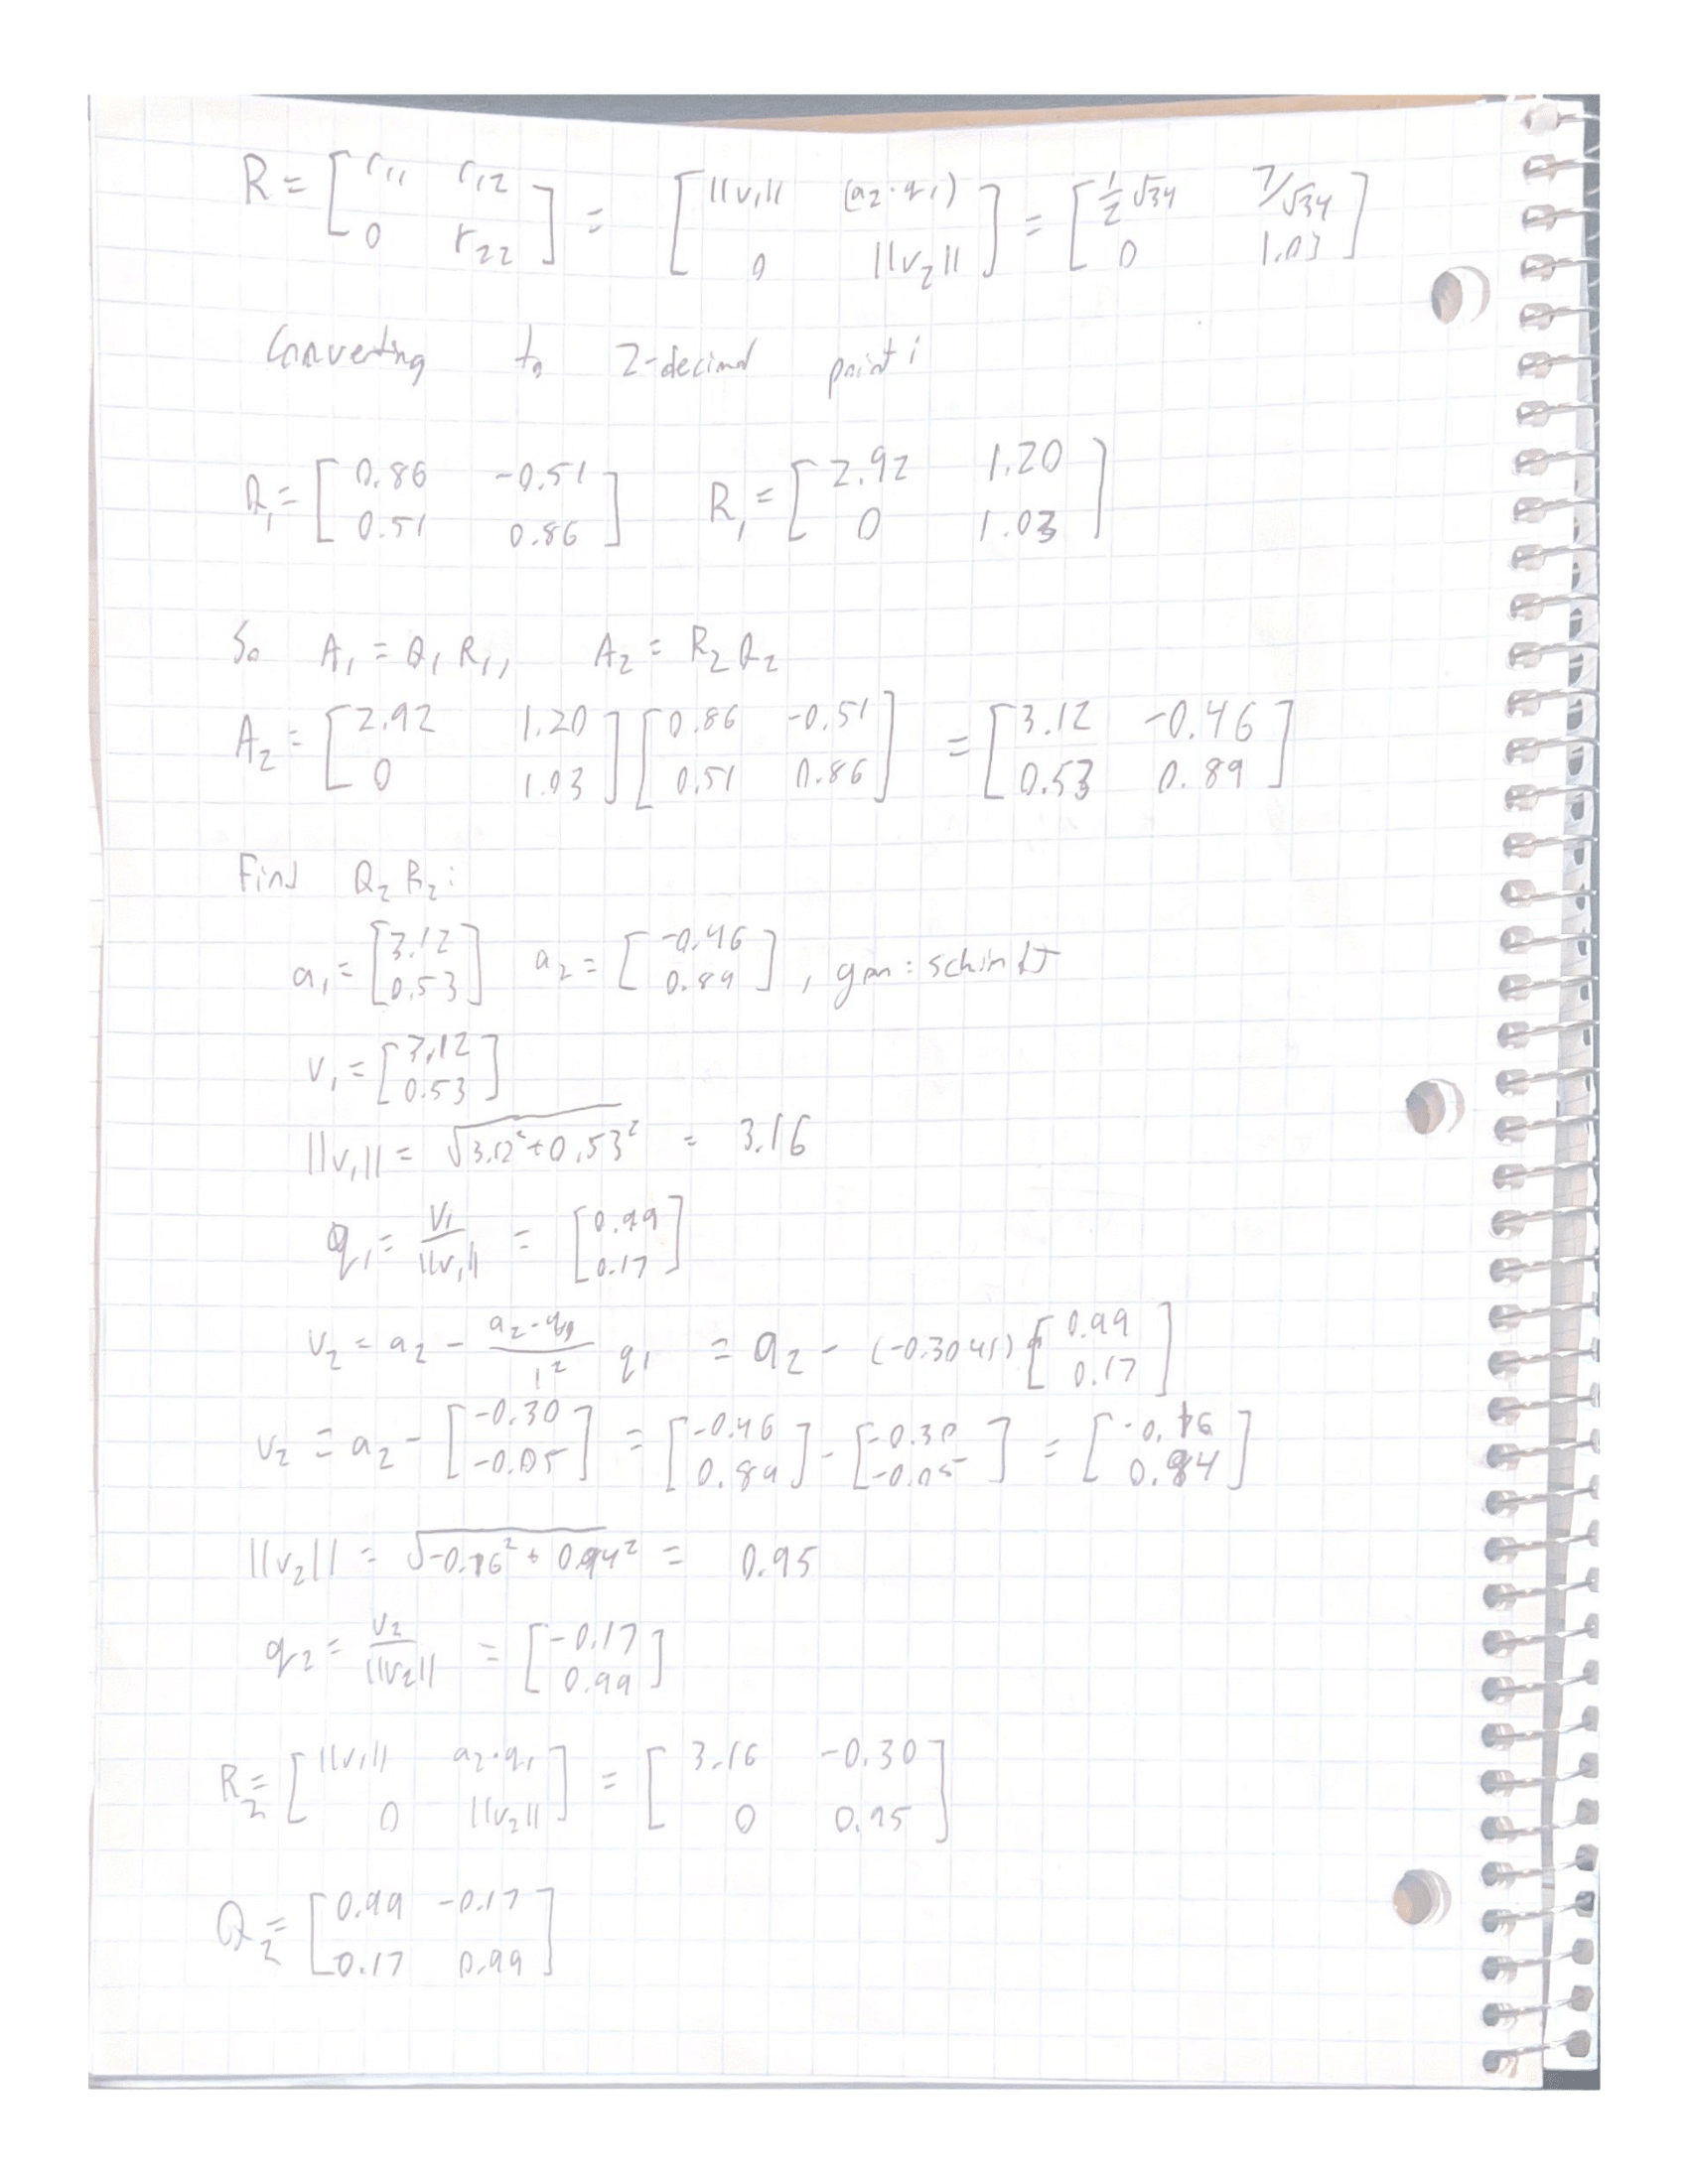 R = [ r11 r12 ; 0 r22 ] = [ ||v1|| (a2·q1) ; 0 ||v2|| ] = [ 1/2 √34 7/√34 ; 0 1.03 ]
Converting to 2-decimal point:
Q1 = [ 0.86 -0.51 ; 0.51 0.86 ] R1 = [ 2.92 1.20 ; 0 1.03 ]
So A1 = Q1 R1, A2 = R2 Q2
A2 = [ 2.92 1.20 ; 0 1.03 ] [ 0.86 -0.51 ; 0.51 0.86 ] = [ 3.12 -0.46 ; 0.53 0.89 ]
Find Q2 R2:
a1 = [ 3.12 ; 0.53 ] a2 = [ -0.46 ; 0.89 ],
v1 = [ 3.12 ; 0.53 ]
||v1|| = √3.12² + 0.53² = 3.16
q1 = v1/||v1|| = [ 0.99 ; 0.17 ]
v2 = a2 - (a2·q1)/1² q1 = a2 - (-0.3041) [ 0.99 ; 0.17 ]
v2 = a2 - [ -0.30 ; -0.05 ] = [ -0.46 ; 0.89 ] - [ -0.30 ; -0.05 ] = [ -0.16 ; 0.94 ]
||v2|| = √-0.16² + 0.94² = 0.95
q2 = v2/||v2|| = [ -0.17 ; 0.99 ]
R2 = [ ||v1|| a2·q1 ; 0 ||v2|| ] = [ 3.16 -0.30 ; 0 0.95 ]
Q2 = [ 0.99 -0.17 ; 0.17 0.99 ]